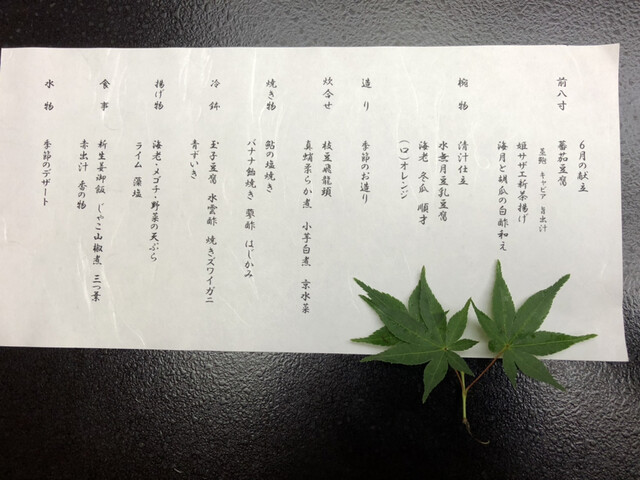 6月の献立
前八寸
蕃茄豆腐
蒸鮑 キャビア 旨出汁
姫サザエ新茶揚げ
海月と胡瓜の白酢和え
椀物
清汁仕立
水無月豆乳豆腐
海老 冬瓜 順才
(口)オレンジ
造り
季節のお造り
炊合せ
枝豆飛龍頭
真蛸柔らか煮 小芋白煮 京水菜
焼き物
鮎の塩焼き
バナナ飴焼き 蓼酢 はじかみ
冷鉢
玉子豆腐 水雲酢 焼きズワイガニ
青ずいき
揚げ物
海老・メゴチ・野菜の天ぷら
ライム 藻塩
食事
新生姜御飯 じゃこ山椒煮 三つ葉
赤出汁 香の物
水物
季節のデザート